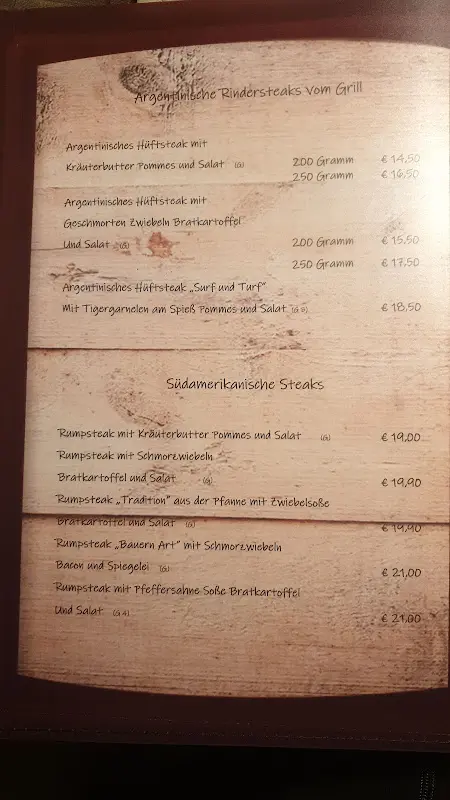 Argentinische Rindersteaks vom Grill
Argentinisches Hüftsteak mit
Kräuterbutter Pommes und Salat (G) 200 Gramm € 14,50
250 Gramm € 16,50
Argentinisches Hüftsteak mit
Geschmorten Zwiebeln Bratkartoffel
Und Salat (G) 200 Gramm € 15,50
250 Gramm € 17,50
Argentinisches Hüftsteak „Surf und Turf“
Mit Tigergarnelen am Spieß Pommes und Salat € 18,50
Südamerikanische Steaks
Rumpsteak mit Kräuterbutter Pommes und Salat (G) € 19,00
Rumpsteak mit Schmorzwiebeln
Bratkartoffel und Salat (G) € 19,90
Rumpsteak „Tradition“ aus der Pfanne mit Zwiebelsoße
Bratkartoffel und Salat (G) € 19,90
Rumpsteak „Bauern Art“ mit Schmorzwiebeln
Bacon und Spiegelei (G) € 21,00
Rumpsteak mit Pfeffersahne Soße Bratkartoffel
Und Salat (G,4) € 21,00